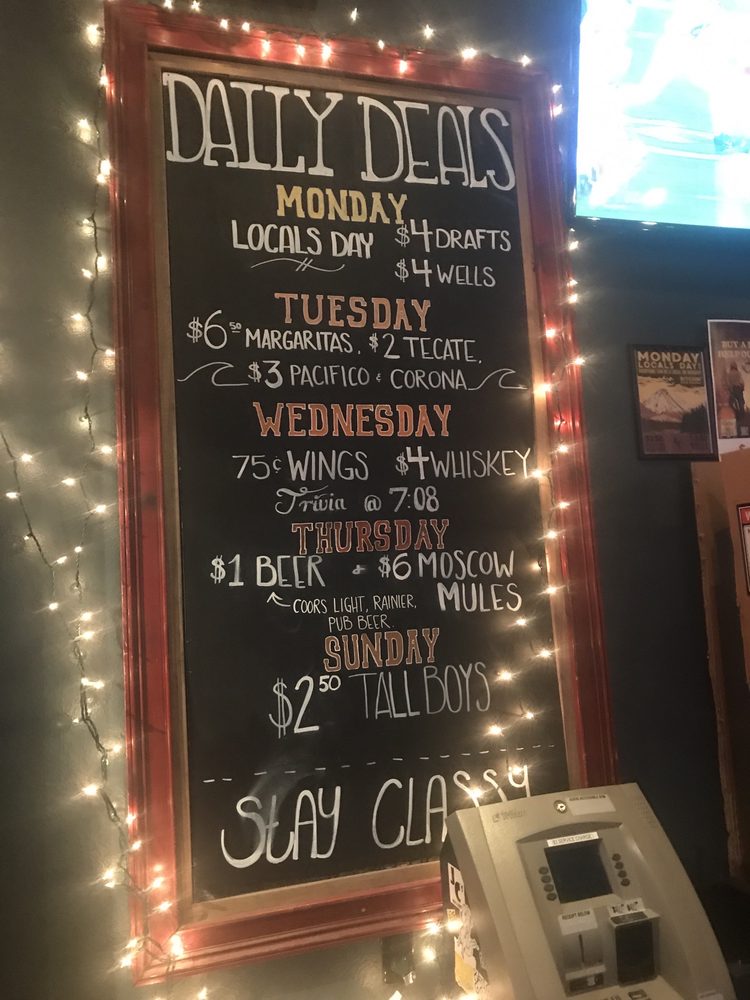 DAILY DEALS
MONDAY
LOCALS DAY $4 DRAFTS
$4 WELLS
TUESDAY
$6.50 MARGARITAS, $2 TECATE,
$3 PACIFICO & CORONA
WEDNESDAY
75¢ WINGS $4 WHISKEY
Trivia @ 7:08
THURSDAY
$1 BEER & $6 MOSCOW
MULES
COORS LIGHT, RAINIER,
PUB BEER.
SUNDAY
$2.50 TALL BOYS
STAY CLASSY
MONDAY
LOCALS DAY!
BUY A
RECEIPT BELOW